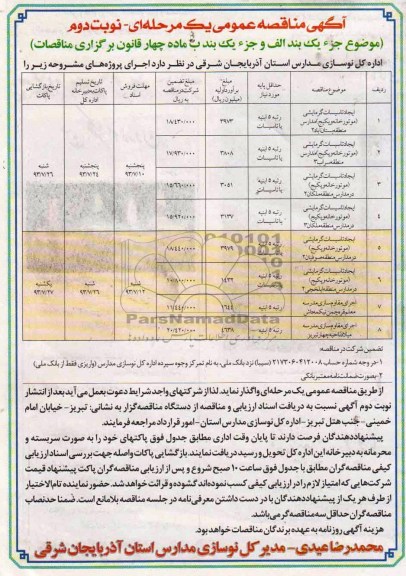 آگهی مناقصه عمومی یک مرحله‌ای- نوبت دوم
(موضوع جزء یک بند الف و جزء یک بند ب ماده چهار قانون برگزاری مناقصات)
اداره کل نوسازی مدارس استان آذربایجان شرقی در نظر دارد اجرای پروژه‌های مشروحه زیر را
ردیف موضوع مناقصه حداقل پایه مورد نیاز مبلغ برآورد اولیه (میلیون ریال) مبلغ تضمین شرکت در مناقصه به ریال مهلت فروش اسناد تاریخ تسلیم پاکات به دبیرخانه اداره کل تاریخ بازگشایی پاکات
۱ ایجاد تاسیسات گرمایشی (موتورخانه و پکیج) مدارس رتبه ۵ ابنیه یا تاسیسات ۳۹۷۳ ۱۸/۴۳۰/۰۰۰
۲ ایجاد تاسیسات گرمایشی (موتورخانه و پکیج) مدارس رتبه ۵ ابنیه یا تاسیسات ۳۸۰۸ ۱۷/۹۳۰/۰۰۰
۳ ایجاد تاسیسات گرمایشی (موتورخانه و پکیج) در مدارس منطقه ملکان ۲ رتبه ۵ ابنیه یا تاسیسات ۳۰۵۱ ۱۵/۶۶۰/۰۰۰
پنجشنبه ۹۳/۷/۱۰ پنجشنبه ۹۳/۷/۲۴ شنبه ۹۳/۷/۲۶
۴ ایجاد تاسیسات گرمایشی (موتورخانه و پکیج) در مدارس منطقه ملکان ۳ رتبه ۵ ابنیه یا تاسیسات ۳۱۳۷ ۱۵/۹۲۰/۰۰۰
۵ ایجاد تاسیسات گرمایشی (موتورخانه و پکیج) رتبه ۵ ابنیه یا تاسیسات ۳۹۷۹ ۱۸/۴۴۰/۰۰۰
۶ ایجاد تاسیسات گرمایشی (موتورخانه و پکیج) رتبه ۵ ابنیه یا تاسیسات ۱۴۳۲
شنبه ۹۳/۷/۱۲ شنبه ۹۳/۷/۲۶ یکشنبه ۹۳/۷/۲۷
۷ اجرای مقاوم سازی مدرسه رتبه ۵ ابنیه ۱۶۴۸ ۱۱/۴۴۰/۰۰۰
۸ اجرای مقاوم سازی مدرسه رتبه ۵ ابنیه ۴۶۳۸ ۲۰/۴۲۰/۰۰۰
ParsNamadData
تضمین شرکت در مناقصه:
۱-در وجه شماره حساب ۲۱۷۳۰۶۰۴۱۲۰۰۸ (سیبا) نزد بانک ملی، به نام تمرکز وجوه سپرده اداره کل نوسازی مدارس (واریزی فقط از بانک ملی)
۲-بصورت ضمانت نامه معتبر بانکی
از طریق مناقصه عمومی یک مرحله‌ای واگذار نماید. لذا از شرکتهای واجد شرایط دعوت بعمل می‌آید بعد از انتشار
نوبت دوم آگهی نسبت به دریافت اسناد ارزیابی و مناقصه از دستگاه مناقصه‌گزار به نشانی: تبریز- خیابان امام
خمینی- جنب هتل تبریز- اداره کل نوسازی مدارس استان- امور قرارداد مراجعه فرمایند.
پیشنهاددهندگان فرصت دارند تا پایان وقت اداری مطابق جدول فوق پاکتهای خود را به صورت سربسته و
محرمانه به دبیرخانه این اداره کل تحویل و رسید دریافت نمایند. بازگشایی پاکات واصله جهت بررسی اسناد ارزیابی
کیفی مناقصه‌گران مطابق با جدول فوق ساعت ۱۰ صبح شروع و پس از ارزیابی مناقصه‌گران پاکت پیشنهاد قیمت
شرکت‌هایی که امتیاز لازم را در ارزیابی کیفی کسب نموده‌اند گشوده و قرائت خواهد شد. حضور نماینده تام‌الاختیار
از طرف هر یک از پیشنهاددهندگان با در دست داشتن معرفی‌نامه در جلسه مناقصه بلامانع است. ضمنا حد نصاب
مناقصه‌گران حداقل سه مناقصه‌گر می‌باشد.
هزینه آگهی روزنامه به عهده برندگان مناقصات خواهد بود.
محمدرضا عیدی- مدیر کل نوسازی مدارس استان آذربایجان شرقی